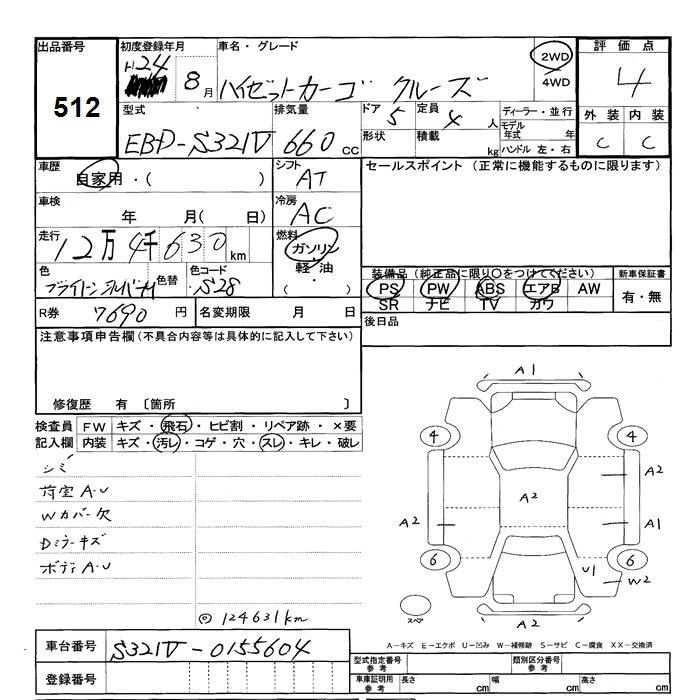 出品番号
512
初度登録年月
H24 8月
車名・グレード
ハイゼットカーゴ クルーズ
2WD
4WD
評価点
4
外装 内装
C C
型式
EBD-S321V
排気量
660cc
ドア 5
形状
定員 4人
積載 kg
ディーラー・並行
モデル年式 年
ハンドル 左・右
車歴
自家用・( )
シフト
AT
セールスポイント (正常に機能するものに限ります)
車検
年 月( 日)
冷房
AC
走行
12万4千630km
燃料
ガソリン
軽・油
( ・ )
色
色替
色コード
S28
装備品(純正品に限り〇をつけてください)
PS PW ABS エアB AW
SR ナビ TV ガワ
新車保証書
有・無
R券 7690円
名変期限 月 日
後日品
注意事項申告欄(不具合内容等は具体的に記入して下さい)
修復歴 有 〔箇所 〕
検査員記入欄
FW キズ・飛石・ヒビ割・リペア跡・×要
内装 キズ・汚レ・コゲ・穴・スレ・キレ・破レ
シミ
荷室A-U
Wカバー欠
Dミラーキズ
ボディA-U
◎124631km
A1
4 4
A2
A2
A2 A1
6 6
U1
W2
スペア
A2
A-キズ E-エクボ U-凹み W-補修跡 S-サビ C-腐食 XX-交換済
車台番号
S321V-0155604
登録番号
型式指定番号 参考
類別区分番号 参考
車庫証明用 参考
長さ cm 幅 cm 高さ cm